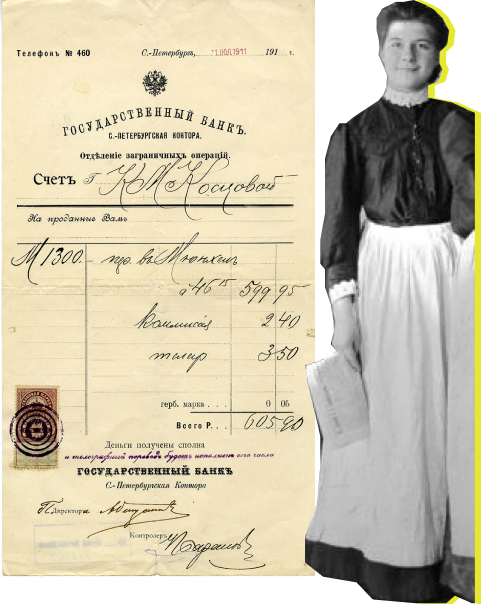 Телефонъ № 460
С.-Петербургъ, 1911 191 г.
ГОСУДАРСТВЕННЫЙ БАНКЪ.
С.-ПЕТЕРБУРГСКАЯ КОНТОРА.
Отдѣленіе заграничныхъ операцій.
Счетъ Г К М Косцовой
На проданные Вамъ
М 1300.- пер. въ Мюнхенъ
à 46 15 599 95
Коммисія 2 40
телегр 3 50
герб. марка . . . 0 05
Всего Р. . . 605 90
Деньги получены сполна
и телеграфный переводъ будетъ исполненъ сего числа
ГОСУДАРСТВЕННЫЙ БАНКЪ
С.-Петербургская Контора
П. Директора
Контролеръ